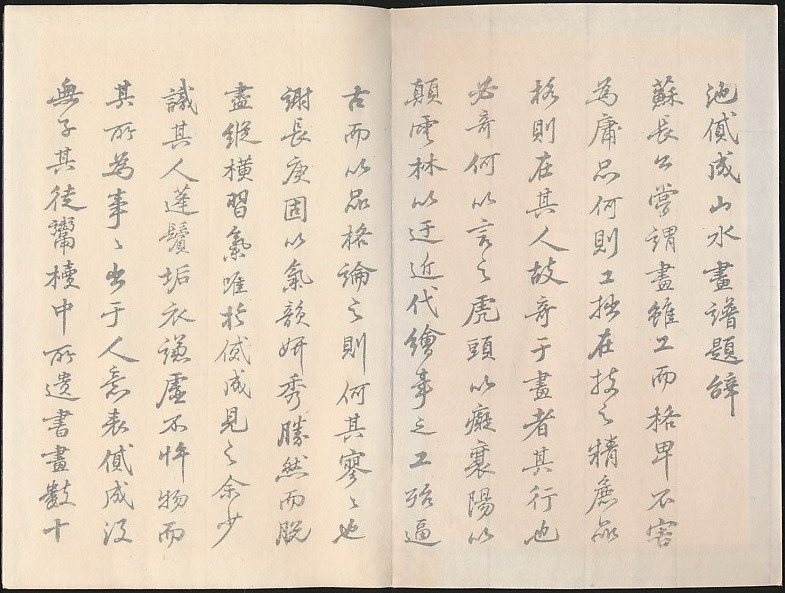 池貸成山水畫譜題辭
蘇長公嘗謂畫雖工而格卑不害
為庸品何則工拙在技之精麁品
格則在其人故奇于畫者其行也
必奇何以言之虎頭以癡襄陽以
顛雲林以迂近代繪事之工殆逼
古而以品格論之則何其寥〻也
謝長庚固以氣韻妍秀勝然而脫
盡縱橫習氣唯於貸成見之余少
識其人蓬鬢垢衣謙虛不忤物而
其所為事〻出于人意表貸成沒
無子其徒鬻櫝中所遺書畫數十